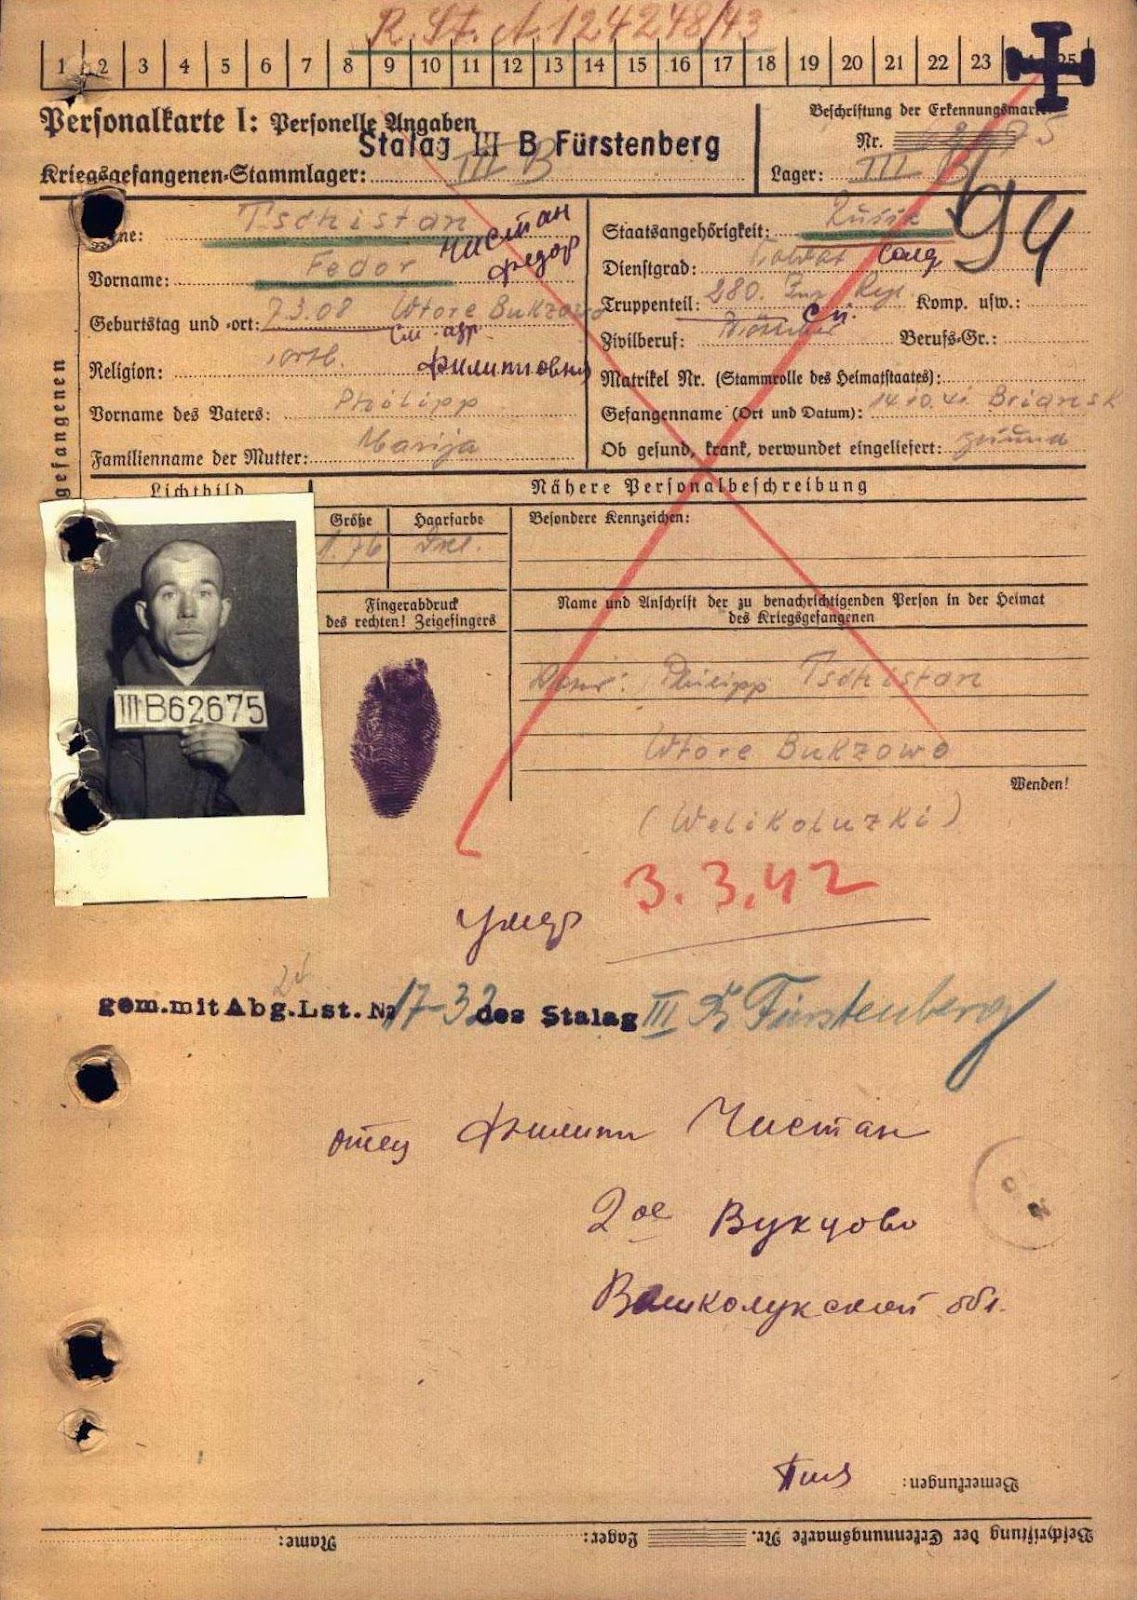 R. St. A. 124248/43
1 2 3 4 5 6 7 8 9 10 11 12 13 14 15 16 17 18 19 20 21 22 23 25
Personalkarte I: Personelle Angaben
Beschriftung der Erkennungsmarke
Stalag III B Fürstenberg
Nr.
Kriegsgefangenen-Stammlager: III B
Lager: III B
94
Tschistan Чистан
Staatsangehörigkeit: Russe
Vorname: Fedor Федор
Dienstgrad: Soldat Солд
Geburtstag und -ort: 7.3.08 Wtore Bukzowo
Truppenteil: 280. Inf. Reg. Komp. usw.:
Zivilberuf: Berufs-Gr.:
Religion: orth. Филиппович
Matrikel Nr. (Stammrolle des Heimatstaates):
Vorname des Vaters: Philipp
Gefangenname (Ort und Datum): 14.10.41 Briansk
Familienname der Mutter: Marija
Ob gesund, krank, verwundet eingeliefert: gesund
gefangenen
Lichtbild
Nähere Personalbeschreibung
Größe Haarfarbe
Besondere Kennzeichen:
1.76
Fingerabdruck
des rechten! Zeigefingers
Name und Anschrift der zu benachrichtigenden Person in der Heimat
des Kriegsgefangenen
III B 62675
Philipp Tschistan
Wtore Bukzowo
Wenden!
(Welikoluzki)
3.3.42
умер
gem.mit Abg.Lst.Nr 17-32 des Stalag III B Fürstenberg
отец Филипп Чистан
2ое Букцово
Великолукской обл.
Bemerkungen:
Beschriftung der Erkennungsmarke Nr. Lager: Name: